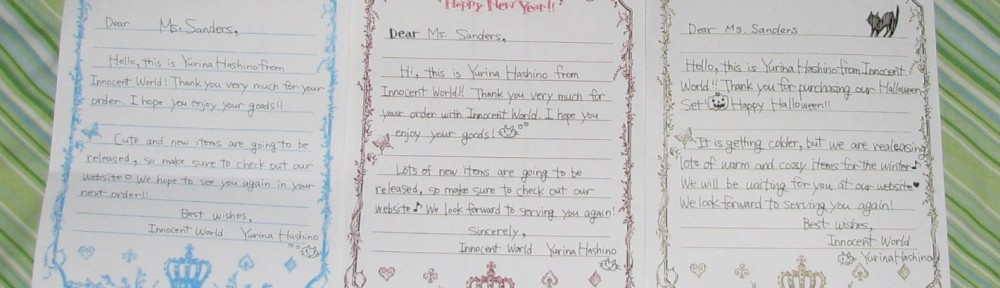 Dear Ms. Sanders,
Hello, this is Yurina Hashino from
Innocent World! Thank you very much for your
order. I hope you enjoy your goods!!
Cute and new items are going to be
released, so make sure to check out our
website♡ We hope to see you again in your
next order!!
Best wishes,
Innocent World Yurina Hashino
Happy New Year!!
Dear Ms. Sanders,
Hi, this is Yurina Hashino from
Innocent World!! Thank you very much for
your order with Innocent World. I hope you
enjoy your goods!
Lots of new items are going to be
released, so make sure to check out our
website♪ We look forward to serving you again!
Sincerely,
Innocent World Yurina Hashino
Dear Ms. Sanders
Hello, this is Yurina Hashino from Innocent
World!! Thank you for purchasing our Halloween
Set! Happy Halloween!!
It is getting colder, but we are realeasing
lots of warm and cozy items for the winter♪
We will be waiting for you at our website♥
We look forward to serving you again!
Best wishes,
Innocent World
Yurina Hashino